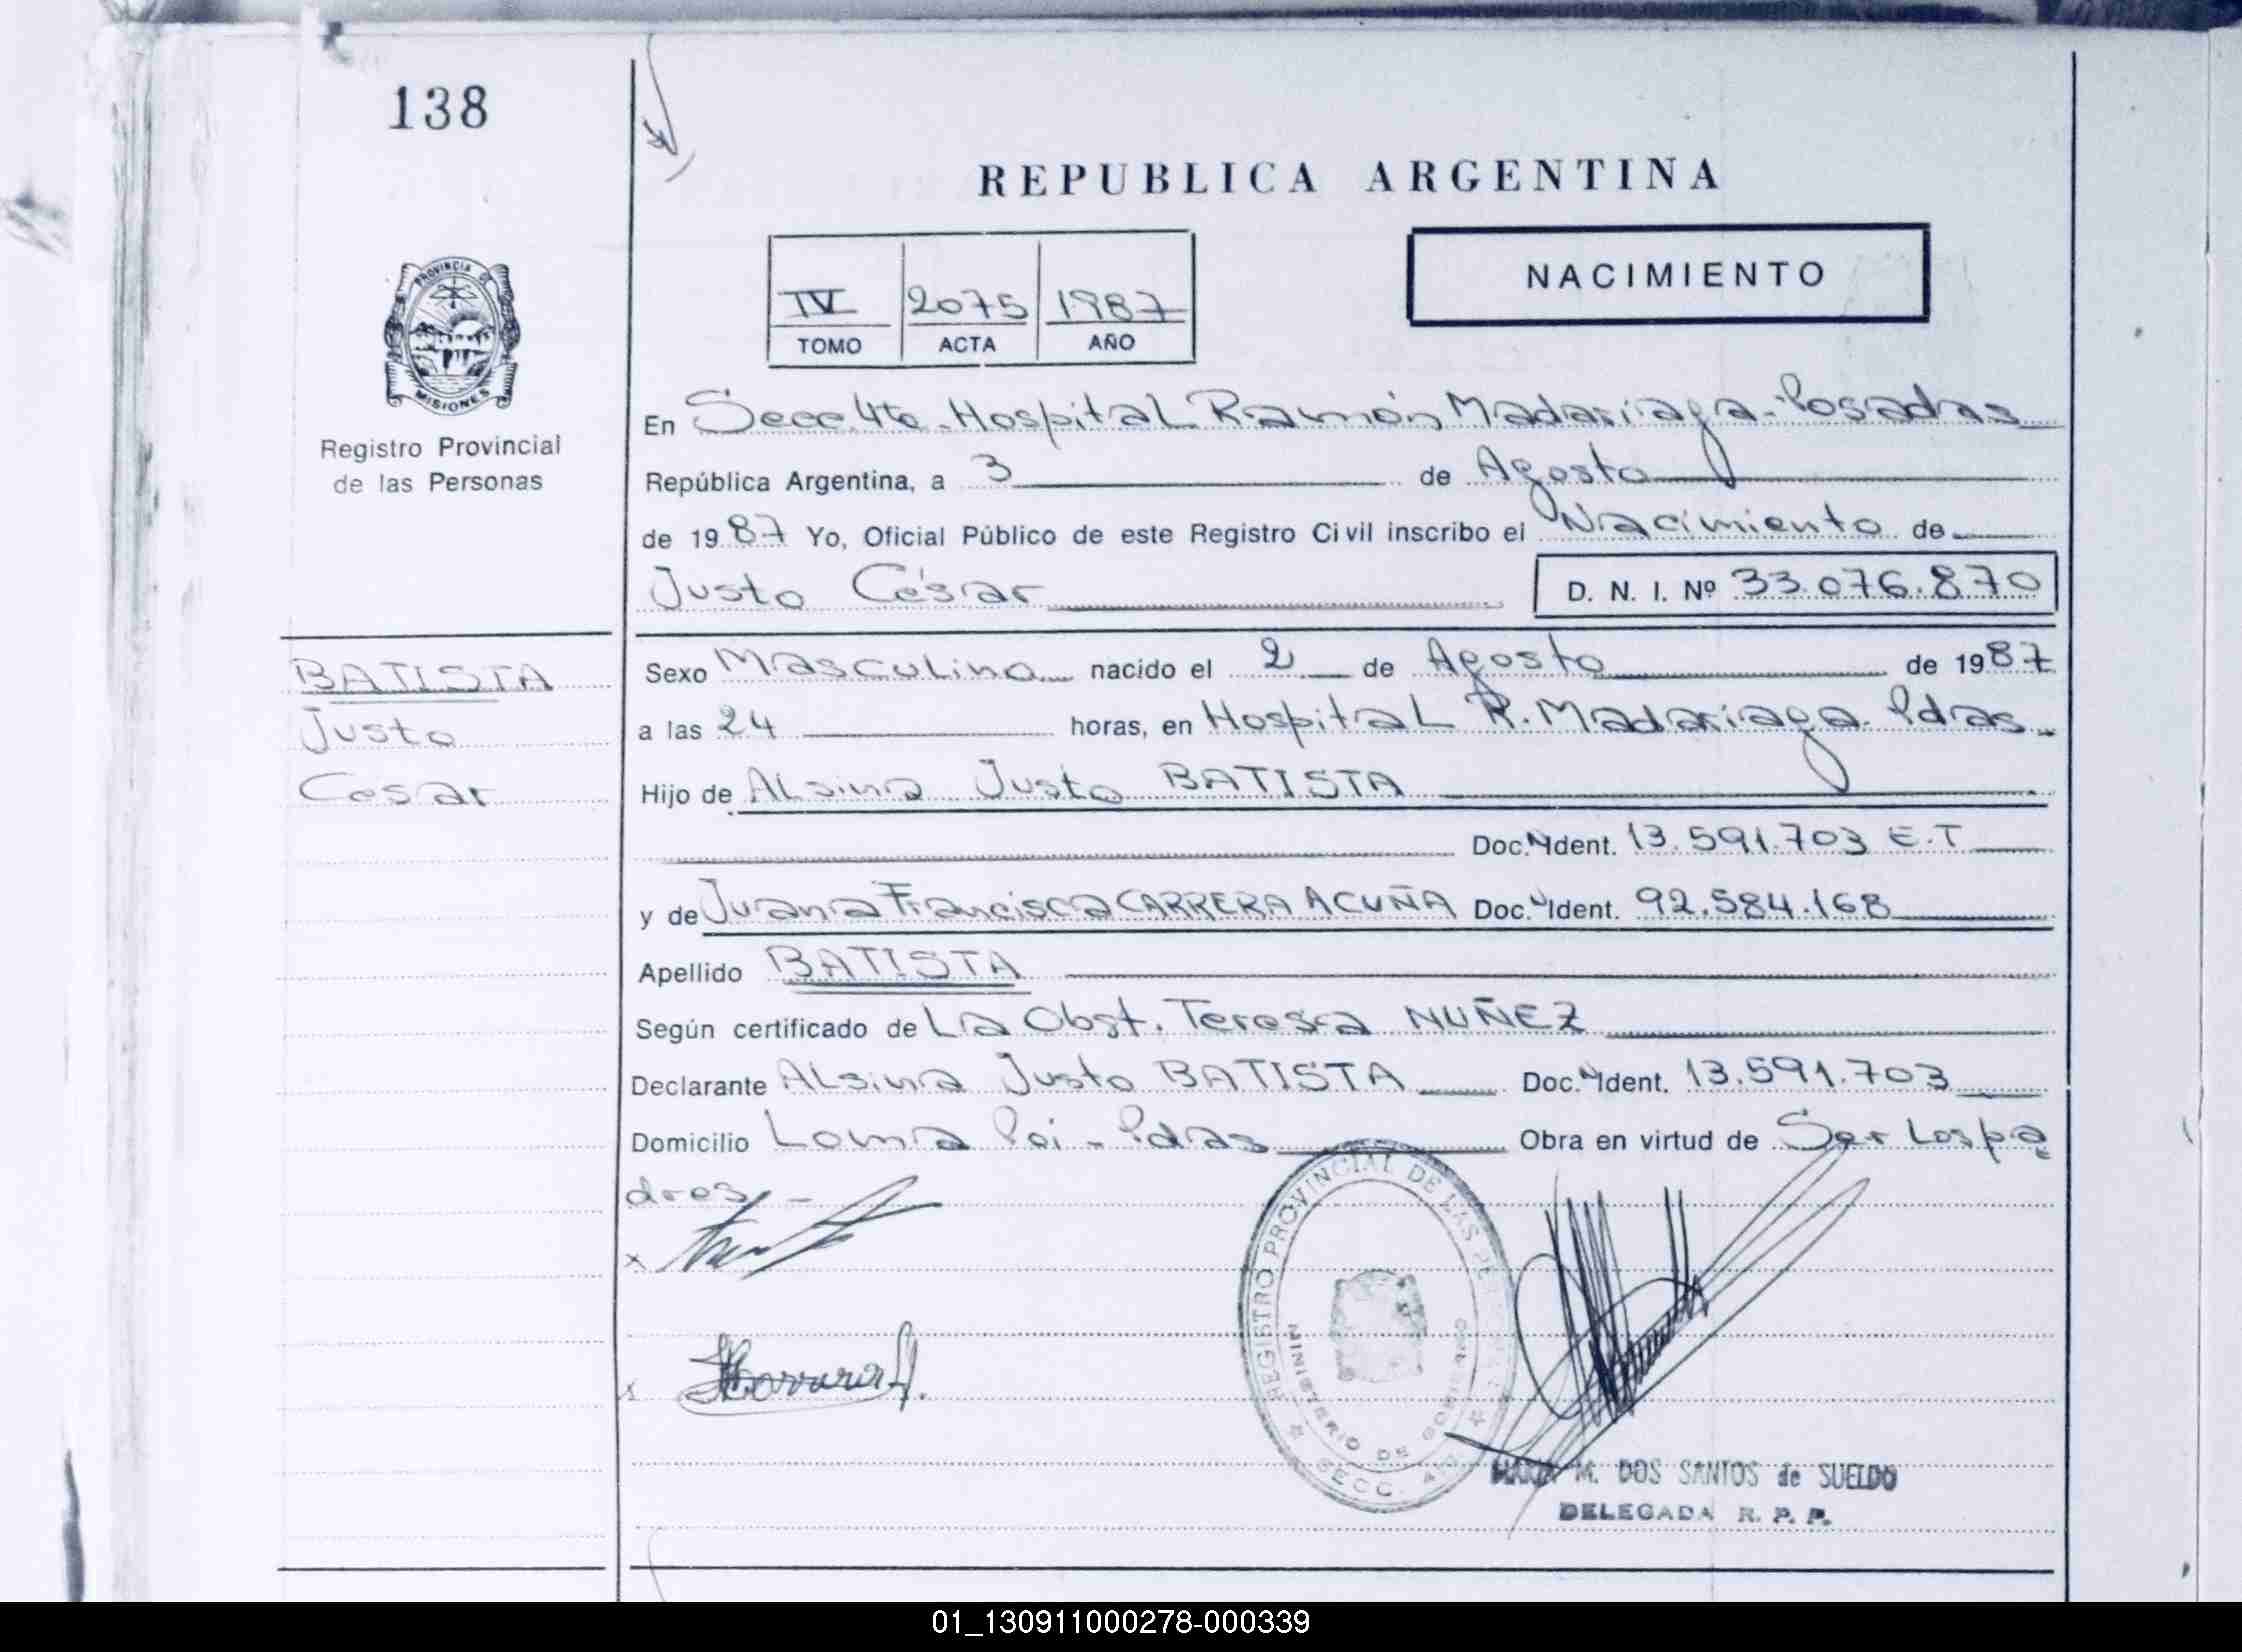 138
REPUBLICA ARGENTINA
IV 2075 1987
TOMO ACTA AÑO
NACIMIENTO
PROVINCIA DE
MISIONES
Registro Provincial
de las Personas
En Secc. 4ta. Hospital Ramón Madariaga - Posadas
República Argentina, a 3 de Agosto
de 1987 Yo, Oficial Público de este Registro Civil inscribo el Nacimiento de
Justo César D. N. I. Nº 33.076.870
BATISTA
Justo
Cesar
Sexo Masculino nacido el 2 de Agosto de 1987
a las 24 horas, en Hospital R. Madariaga. Pdas.
Hijo de Alsina Justo BATISTA
Doc. Ident. 13.591.703 E.T
y de Juana Francisca CARRERA ACUÑA Doc. Ident. 92.584.168
Apellido BATISTA
Según certificado de La Obst. Teresa NUÑEZ
Declarante Alsina Justo BATISTA Doc. Ident. 13.591.703
Domicilio Loma Poi - Pdas Obra en virtud de Ser Los pa
dres -
x
x
REGISTRO PROVINCIAL DE LAS
MINISTERIO DE GOBIERNO
SECC.
MARIA M. DOS SANTOS de SUELDO
DELEGADA R. P. P.
01_130911000278-000339